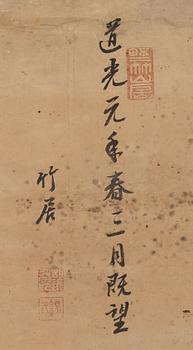 道光元年春二月既望
竹居